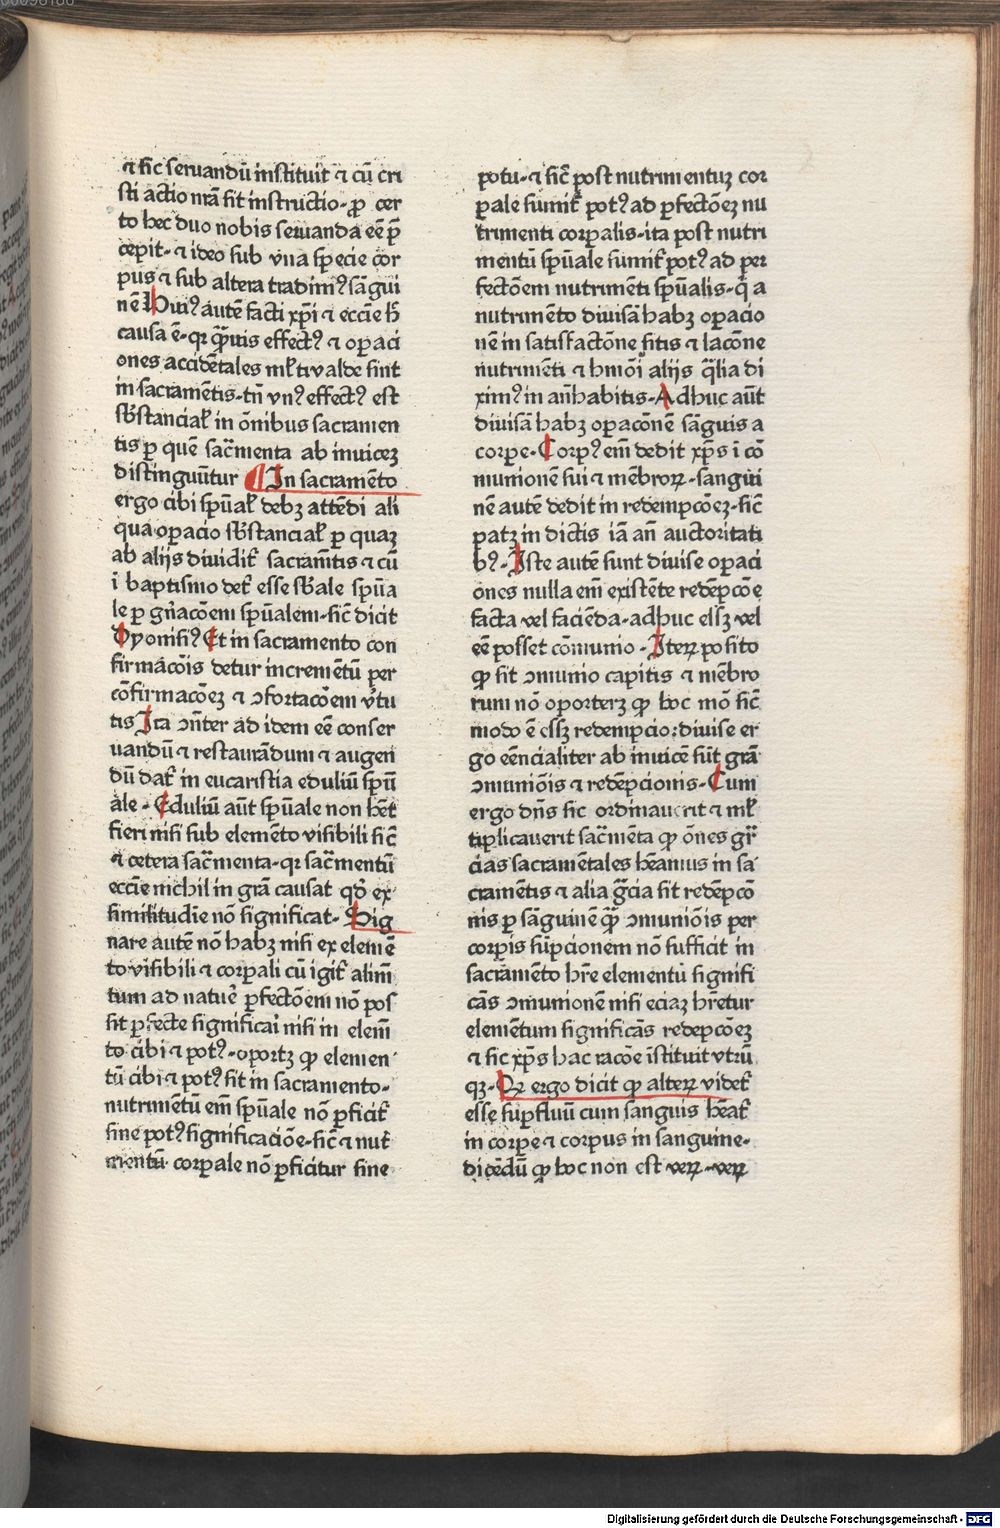 ⁊ sic seruandū instituit ⁊ cū cri
sti actio nr̄a sit instructio·ꝓ cer
to hec duo nobis seruanda eē p̄
cepit·⁊ ideo sub vna specie cor
pus ⁊ sub altera tradimꝰ sāgui
nē Huiꝰ autē facti xp̄i ⁊ eccīe h̄
causa ē·qꝛ qͣ̄uis effectꝰ ⁊ opaci
ones accidētales ml̄ti valde sint
in sacramētis·tn̄ vnꝰ effectꝰ est
sb̄stancial̄ in ōnibus sacramen
tis ꝑ quē sac̄menta ab inuiceꝫ
distinguūtur ¶ In sacramēto
ergo cibi spūal̄ debꝫ attēdi ali
qua oꝑacio sb̄stancial̄ ꝑ quaꝫ
ab alijs diuidit̄ sacramētis ⁊ cū
ī baptismo det̄ esse sb̄ale spūa
le ꝑ gn̄acōem spūalem·sic̄ dicit
Dyonisiꝰ Et in sacramento con
firmacōis detur incremētū per
cōfirmacōeꝫ ⁊ ↄfortacōem v̄tu
tis Ita ↄn̄ter ad idem eē conser
uandū ⁊ restaurādum ⁊ augen
dū dat̄ in eucaristia eduliū spū
ale·Eduliū aūt spūale non hēt
fieri nisi sub elemēto visibili sic̄
⁊ cetera sac̄menta·qꝛ sac̄mentū
eccīe nichil in grā causat qd̄ ex
similitudīe nō significat·Sig
nare autē nō habꝫ nisi ex elemē
to visibili ⁊ corꝑali cū igit̄ alim̄
tum ad natur̄e ꝑfectōem nō pos
sit ꝑfecte significari nisi in elem̄
to cibi ⁊ potꝰ·oportꝫ qꝫ elemen
tū cibi ⁊ potꝰ sit in sacramento·
nutrimētū em̄ spūale nō ꝑficit̄
sine potꝰ significaciōe·sic̄ ⁊ nut̄
mentū corꝑale nō ꝑficitur sine
potu·⁊ sic̄ post nutrimentuꝫ cor
ꝑale sumit̄ potꝰ ad ꝑfectōeꝫ nu
trimenti corꝑalis·ita post nutri
mentū spūale sumit̄ potꝰ ad per
fectōem nutrimēti spūalis·q̄ a
nutrimēto diuisā habꝫ oꝑacio
nē in satisfactōne sitis ⁊ lacōne
nutrimēti ⁊ hmōi alijs qͣ̄lia di
ximꝰ in an̄habitis·Adhuc aūt
diuisā habꝫ oꝑacōnē sāguis a
corpe·Corꝑꝰ em̄ dedit xp̄s ī cō
munionē sui ⁊ mēbroꝝ·sangui
nē autē dedit in redempcōeꝫ·sic̄
patꝫ in dictis iā an̄ auctoritati
bꝰ·Iste autē sunt diuise oꝑaci
ones nulla em̄ existēte redēpcōe
facta vel faciēda·adhuc essꝫ vel
eē posset cōmunio·Iteꝝ posito
ꝙ sit ↄmunio capitis ⁊ mēbro
rum nō oporteꝝ ꝙ hoc mō sic̄
modo ē essꝫ redempcio:diuise er
go eēncialiter ab inuicē sūt grā
ↄmuniōis ⁊ redēpcionis·Cum
ergo dn̄s sic ordinauerit ⁊ ml̄
tiplicauerit sac̄mēta ꝙ ōnes gr̄
cias sacramētales hēamus in sa
cramētis ⁊ alia gͣ̄cia sit redēpcō
nis ꝑ sāguinē qͣ̄ ↄmuniōis per
corpis sūpcionem nō sufficit in
sacramēto hr̄e elementū signifi
cās ↄmunionē nisi eciaꝫ hr̄etur
elemētum significās redepcōeꝫ
⁊ sic xp̄s hac racōe īstituit vtrū
qꝫ·Qꝛ ergo dicit ꝙ alteꝝ videt̄
esse suꝑfluū cum sanguis hēat̄
in corpe ⁊ corpus in sanguine·
dicēdū ꝙ hoc non est veꝝ·veꝝ
Digitalisierung gefördert durch die Deutsche Forschungsgemeinschaft - DFG